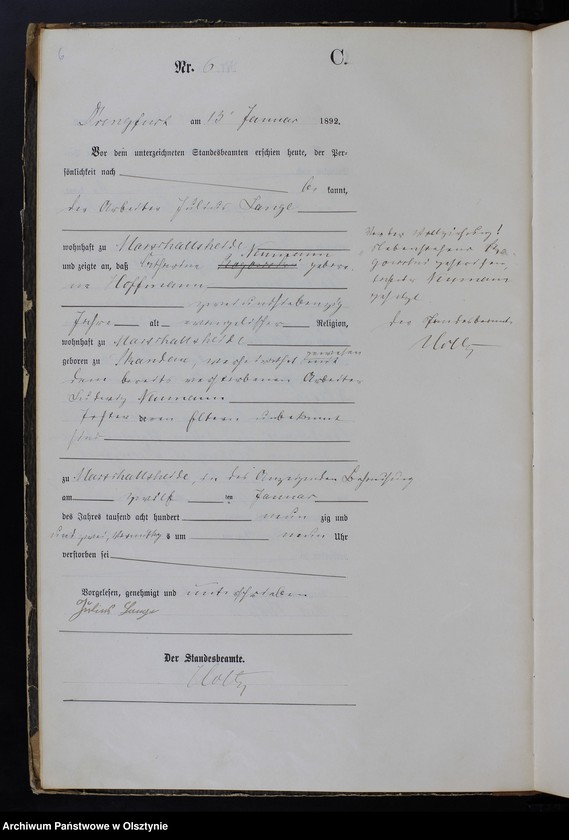 6
C.
Nr. 6
Drengfurt am 13 Januar 1892.
Vor dem unterzeichneten Standesbeamten erschien heute, der Per-
sönlichkeit nach
be kannt,
der Arbeiter Julius Lange
wohnhaft zu Marschallsheide
Neumann
und zeigte an, daß Catharine gebore-
ne Hoffmann
zweiundsiebenzig
Jahre alt evangelischer Religion,
wohnhaft zu Marschallsheide
gewesen
geboren zu Skandau, verheirathet
dem bereits verstorbenen Arbeiter
Ludwig Neumann
Tochter deren Eltern unbekannt
sind
zu Marschallsheide, in des Anzeigenden Behausung
am zwölf ten Januar
des Jahres tausend acht hundert neun zig und
und zwei, Vormittags um neun Uhr
verstorben sei
Vorgelesen, genehmigt und unterschrieben
Julius Lange
Der Standesbeamte.
Holtz
Vor der Vollziehung!
Nebenstehend
gestrichen,
Neumann
gesetzt
Der Standesbeamte.
Holtz
Archiwum Państwowe w Olsztynie